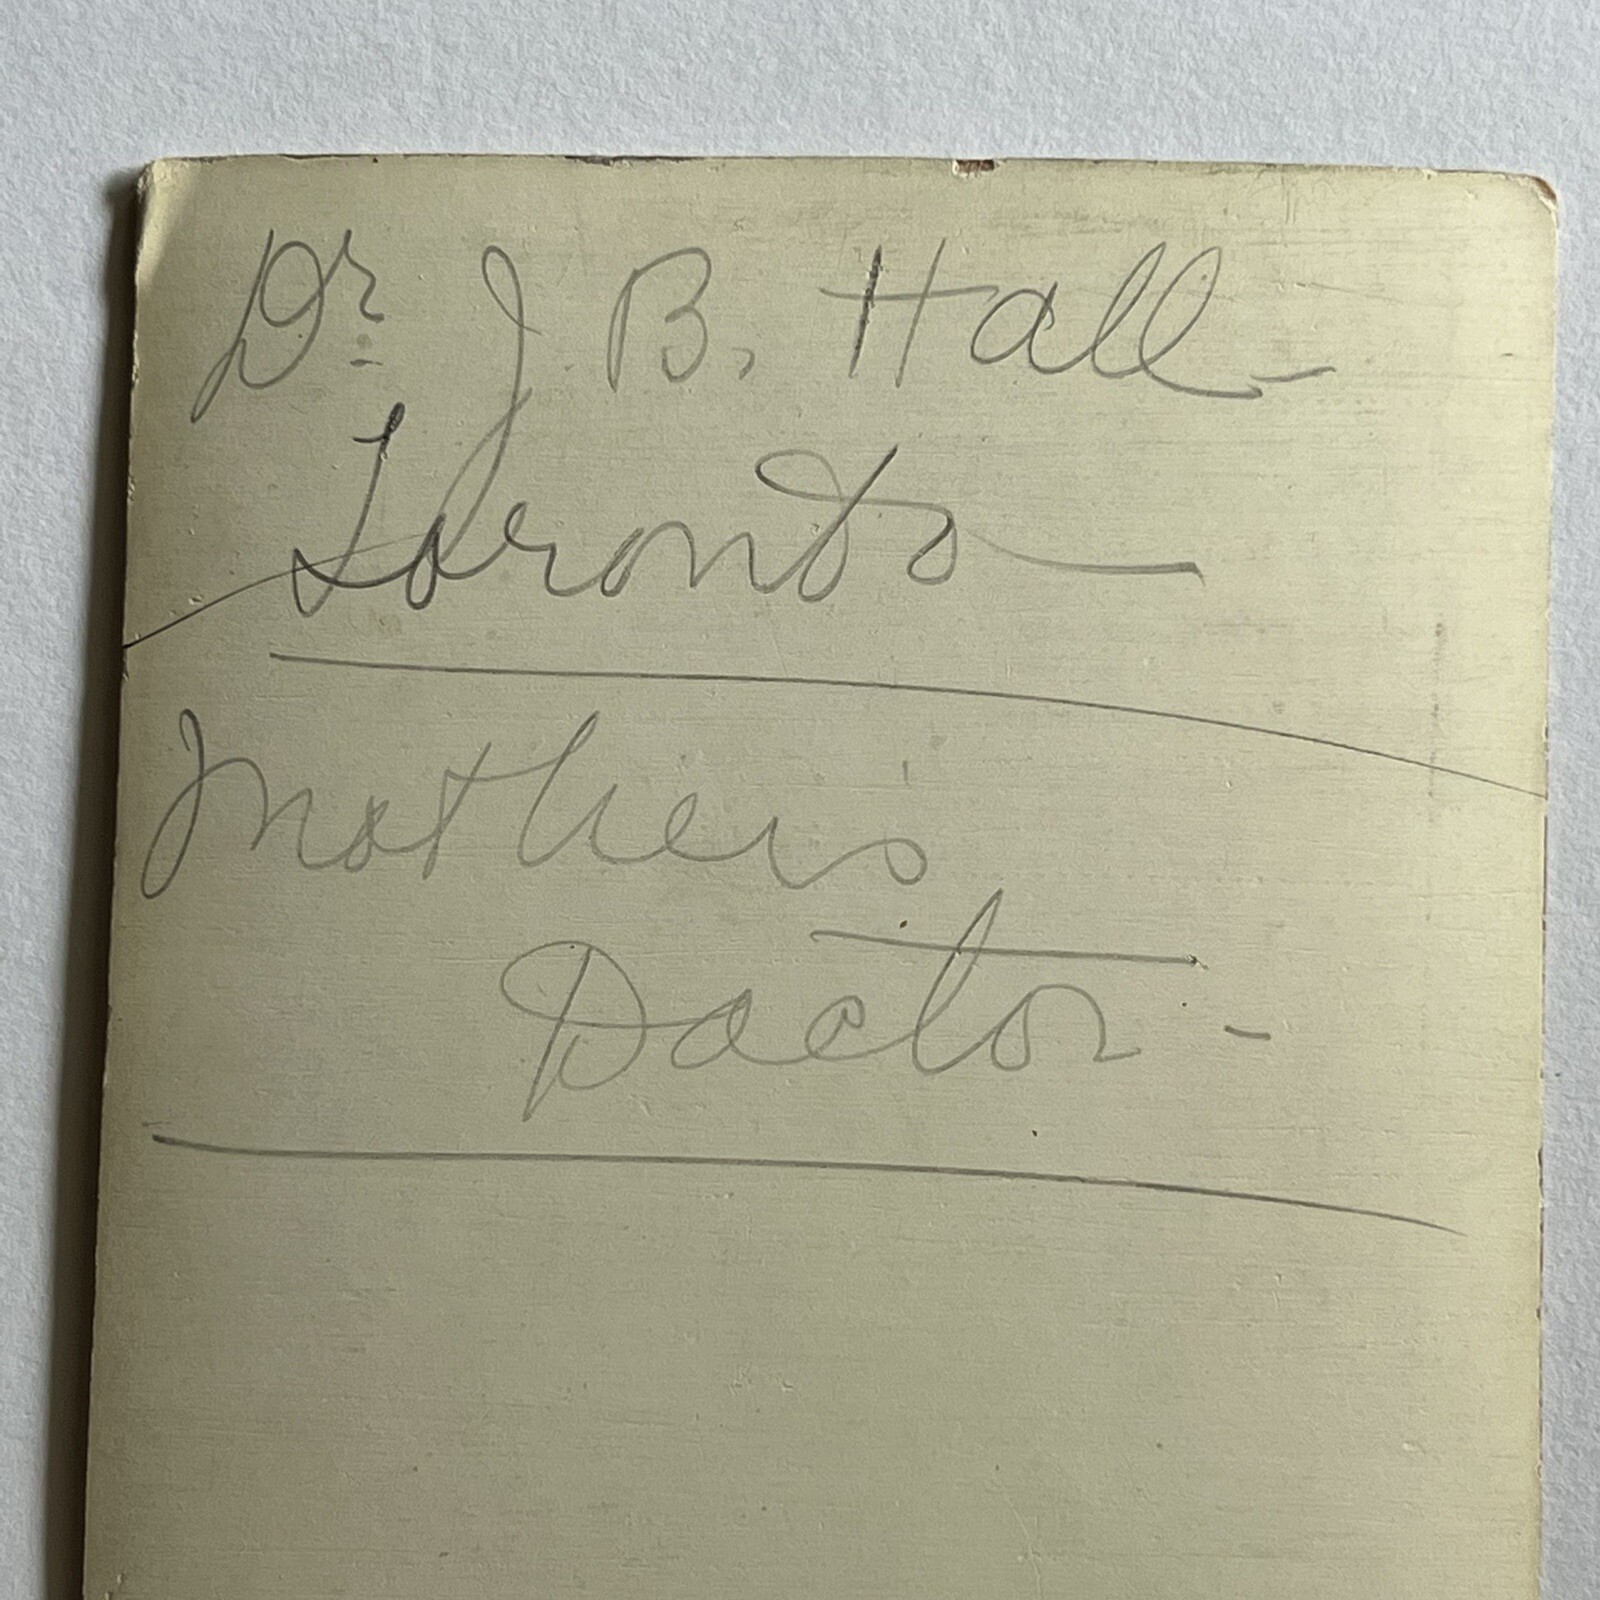 Dr. J. B. Hall -
Toronto
Mother's
Doctor -